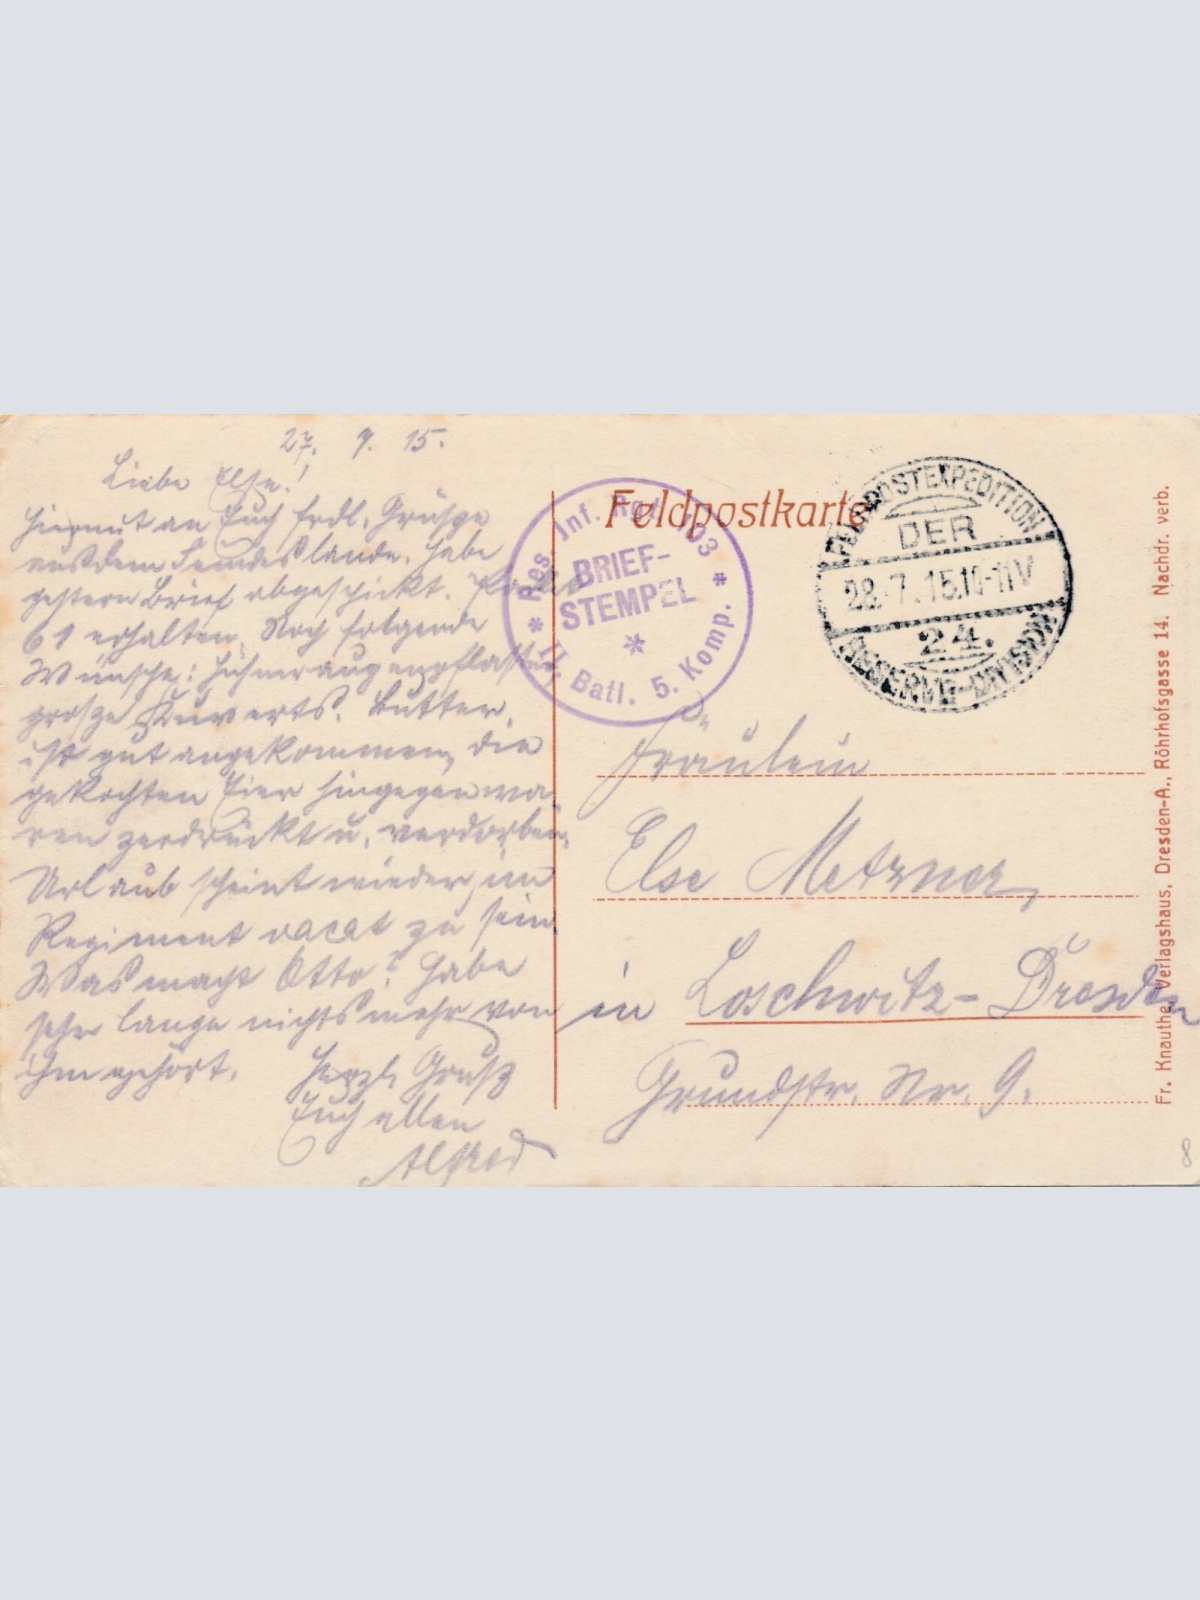 27. 7. 15.
Liebe Else!
Hiermit an Euch frdl. Grüsze
aus dem Feindeslande. Habe
gestern Brief abgeschickt.
61 erhalten. Noch folgende
Wünsche: Hühneraugenpflaster
grosze Kuverts. Butter
ist gut angekommen, die
gekochten Eier hingegen wa-
ren zerdrückt u. verdorben.
Urlaub scheint wieder im
Regiment vacat zu sein.
Was macht Otto? Habe
sehr lange nichts mehr von
ihm gehört. Herzl. Grusz
Euch allen
Alfred
Feldpostkarte
Res. Inf. Rgt. 103
BRIEF-
STEMPEL
II. Batl. 5. Komp.
FELDPOSTEXPEDITION
DER
28.7.15.10-11V
24.
RESERVE-DIVISION
An
Fräulein
Else Metzner,
in Loschwitz-Dresden
Grundstr. Nr. 9.
Fr. Knauthe, Verlagshaus, Dresden-A., Röhrhofsgasse 14. Nachdr. verb.
8